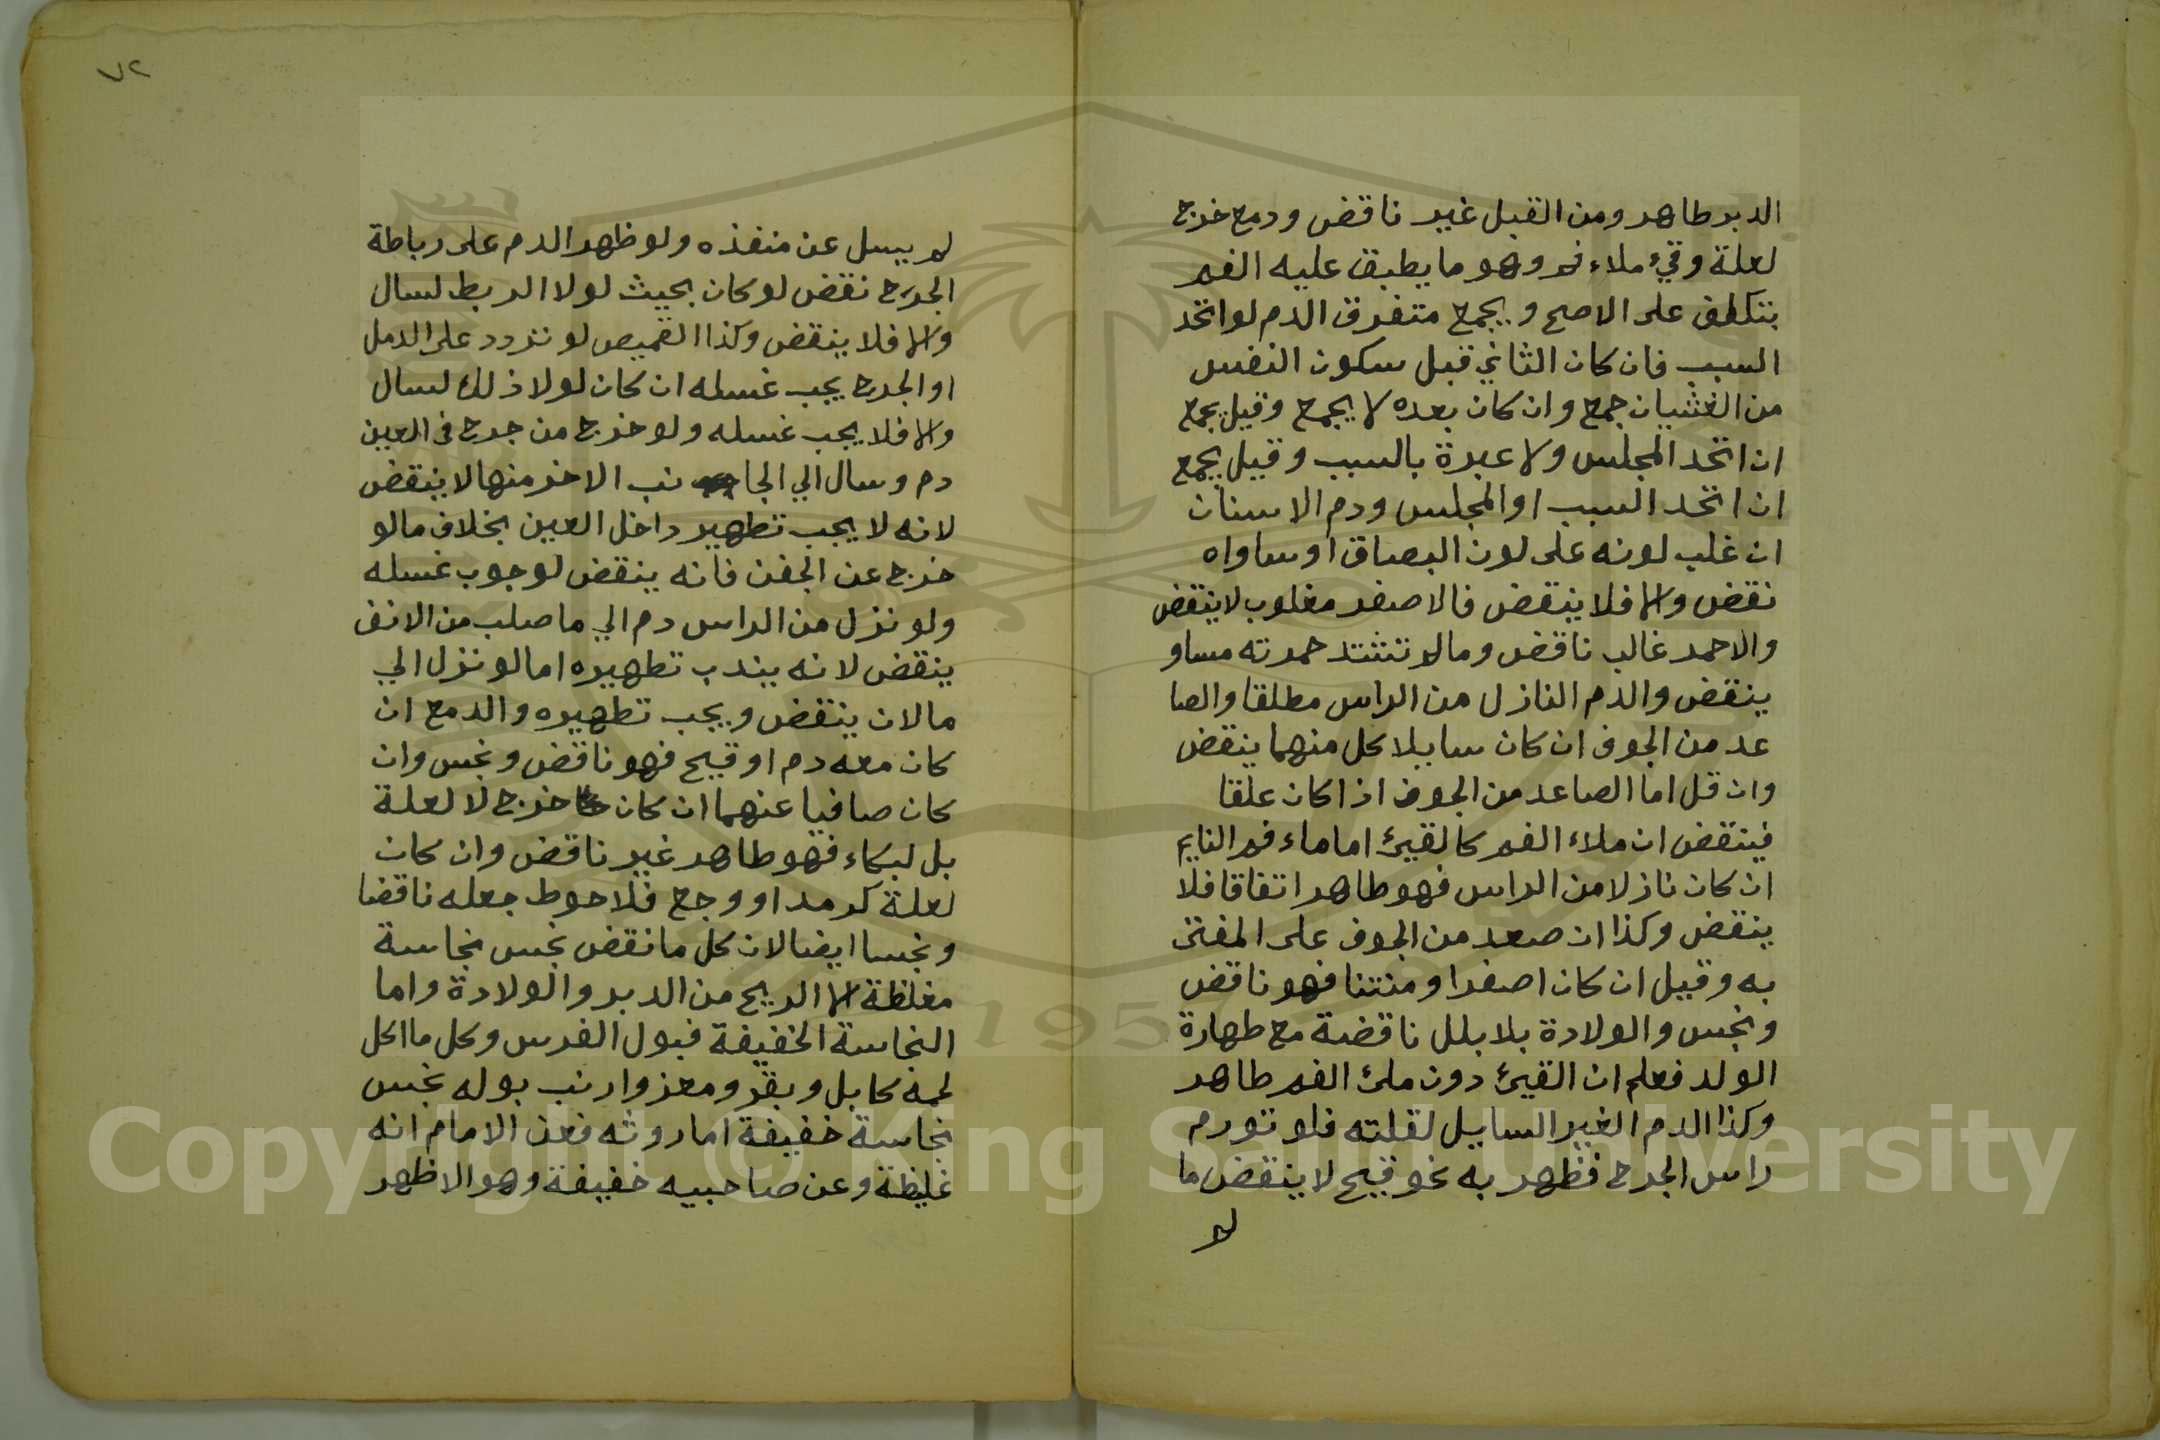 الدبر طاهر ومن القبل غير ناقض ودمع خرج
لعلة وقيء ملاء فم وهو ما يطبق عليه الفم
بتكلف على الاصح ويجمع متفرق الدم لو اتحد
السبب فان كان الثاني قبل سكون النفس
من الغثيان جمع وان كان بعده لا يجمع وقيل يجمع
ان اتحد المجلس ولا عبرة بالسبب وقيل يجمع
ان اتحد السبب او المجلس ودم الاسنان
ان غلب لونه على لون البصاق او ساواه
نقض والا فلا ينقض فالاصفر مغلوب لا ينقض
والاحمر غالب ناقض وما لم تشتد حمرته مساو
ينقض والدم النازل من الراس مطلقا والصا
عد من الجوف ان كان سايلا كل منهما ينقض
وان قل اما الصاعد من الجوف اذا كان علقا
فينقض ان ملاء الفم كالقيئ اما ماء فم النايم
ان كان نازلا من الراس فهو طاهر اتفاقا فلا
ينقض وكذا ان صعد من الجوف على المفتى
به وقيل ان كان اصفر او منتنا فهو ناقض
ونجس والولادة بلا بلل ناقضة مع طهارة
الولد فعلم ان القيئ دون ملئ الفم طاهر
وكذا الدم الغير السايل لقلته فلو تورم
راس الجرح فظهر به نحو قيح لا ينقض ما
لم
٧٢
لم يسل عن منفذه ولو ظهر الدم على رباطة
الجرح نقض لو كان بحيث لولا الربط لسال
والا فلا ينقض وكذا القميص لو تردد على الدمل
او الجرح يجب غسله ان كان لولا ذلك لسال
والا فلا يجب غسله ولو خرج من جرح في العين
دم وسال الي الجا نب الاخر منها لا ينقض
لانه لا يجب تطهير داخل العين بخلاف ما لو
خرج عن الجفن فانه ينقض لوجوب غسله
ولو نزل من الراس دم الي ما صلب من الانف
ينقض لانه يندب تطهيره اما لو نزل الي
ما لان ينقض ويجب تطهيره والدمع ان
كان معه دم او قيح فهو ناقض ونجس وان
كان صافيا عنهما ان كان خرج لا لعلة
بل لبكاء فهو طاهر غير ناقض وان كان
لعلة كرمد او وجع فلاحوط جعله ناقضا
ونجسا ايضا لان كل ما نقض نجس نجاسة
مغلظة الا الريح من الدبر والولادة واما
النجاسة الخفيفة فبول الفرس وكل ما اكل
لحمه كابل وبقر ومعز وارنب بوله نجس
نجاسة خفيفة اما روثه فعن الامام انه
غليظة وعن صاحبيه خفيفة وهو الاظهر
Copyright © King Saud University
1957